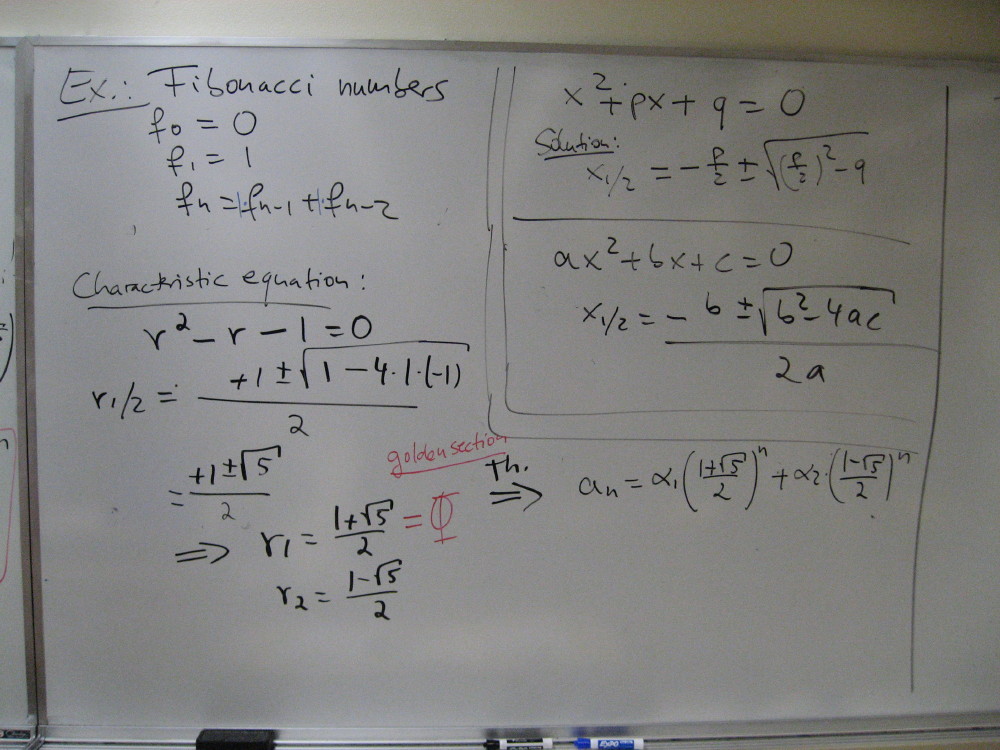 Ex.: Fibonacci numbers
f₀ = 0
f₁ = 1
fₙ = 1·fₙ₋₁ + 1·fₙ₋₂
Characteristic equation:
r² - r - 1 = 0
r₁/₂ = (+1 ± √(1 - 4·1·(-1))) / 2
= (+1 ± √5) / 2
golden section
⇒ r₁ = (1+√5)/2 = Φ
r₂ = (1-√5)/2
x² + px + q = 0
Solution:
x₁/₂ = -p/2 ± √((p/2)² - q)
ax² + bx + c = 0
x₁/₂ = (-b ± √(b² - 4ac)) / 2a
Th.
⇒ aₙ = α₁((1+√5)/2)ⁿ + α₂·((1-√5)/2)ⁿ
EXPO